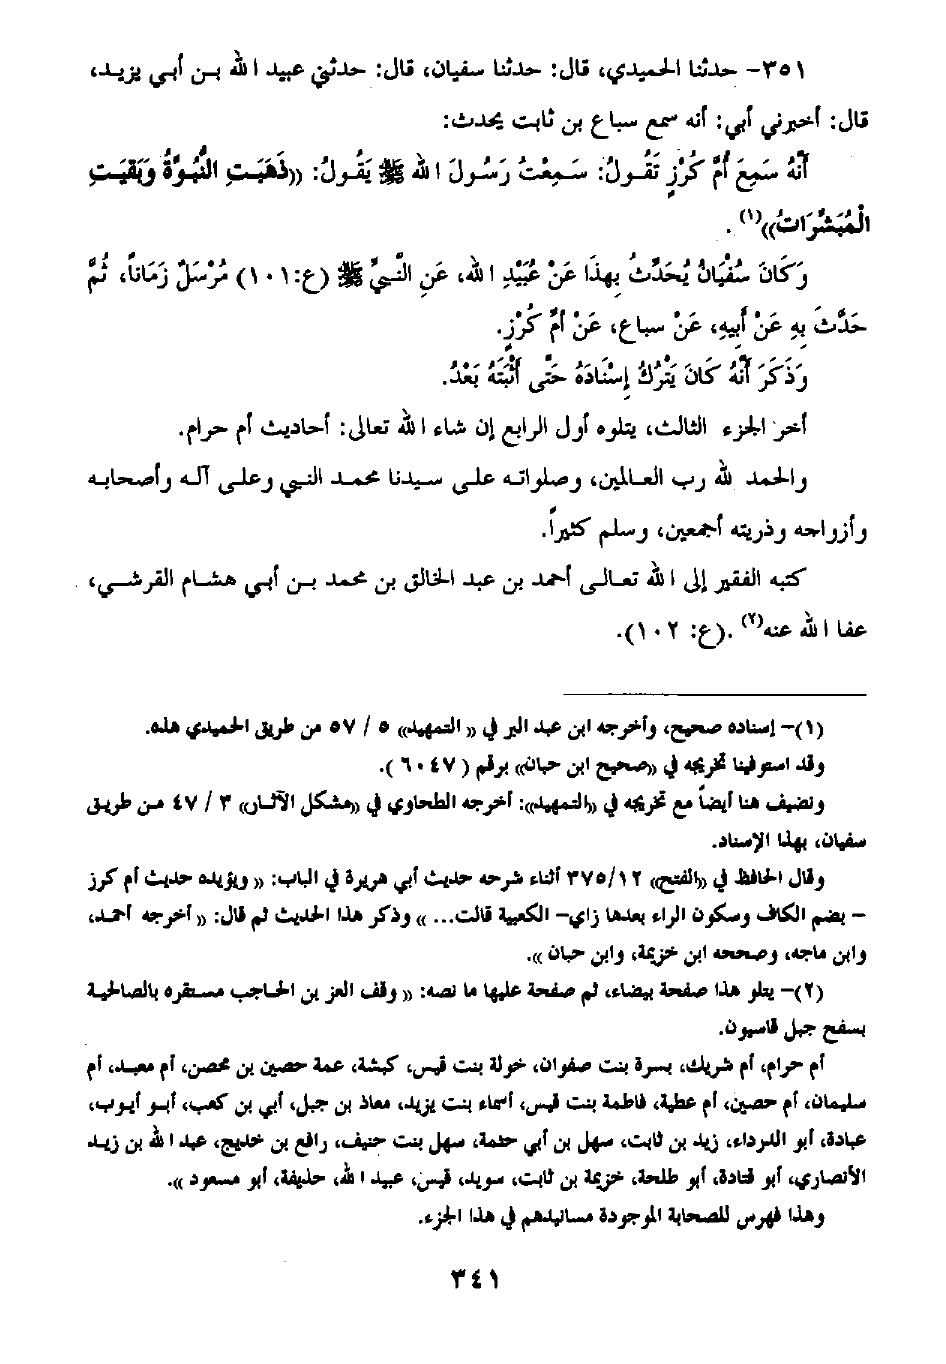 ٣٥١- حدثنا الحميدي، قال: حدثنا سفيان، قال: حدثني عبيد الله بن أبي يزيد،
قال: أخبرني أبي: أنه سمع سباع بن ثابت يحدث:
أَنَّهُ سَمِعَ أُمَّ كُرْزٍ تَقُولُ: سَمِعْتُ رَسُولَ اللهِ ﷺ يَقُولُ: ((ذَهَبَتِ النُّبُوَّةُ وَبَقِيَتِ
الْمُبَشِّرَاتُ))(١).
وَكَانَ سُفْيَانُ يُحَدِّثُ بِهذَا عَنْ عُبَيْدِ الله، عَنِ النَّبِيِّ ﷺ (ع:١٠١) مُرْسَلٌ زَمَاناً، ثُمَّ
حَدَّثَ بِهِ عَنْ أَبِيهِ، عَنْ سباع، عَنْ أُمِّ كُرْزٍ.
وَذَكَرَ أَنَّهُ كَانَ يَتْرُكُ إِسْنَادَهُ حَتَّى أَثْبَتَهُ بَعْدُ.
أخر الجزء الثالث، يتلوه أول الرابع إن شاء الله تعالى: أحاديث أم حرام.
والحمد لله رب العالمين، وصلواته على سيدنا محمد النبي وعلى آله وأصحابه
وأزواجه وذريته أجمعين، وسلم كثيراً.
كتبه الفقير إلى الله تعالى أحمد بن عبد الخالق بن محمد بن أبي هشام القرشي،
عفا الله عنه(٢) .(ع: ١٠٢).
(١)- إسناده صحيح، وأخرجه ابن عبد البر في (( التمهيد)) ٥ / ٥٧ من طريق الحميدي هذه.
وقد استوفينا تخريجه في ((صحيح ابن حبان)) برقم ( ٦٠٤٧ ).
ونضيف هنا أيضاً مع تخريجه في ((التمهيد)): أخرجه الطحاوي في ((مشكل الآثار)) ٣ / ٤٧ من طريق
سفيان، بهذا الإسناد.
وقال الحافظ في ((الفتح)) ٣٧٥/١٢ أثناء شرحه حديث أبي هريرة في الباب: (( ويؤيده حديث أم كرز
– بضم الكاف وسكون الراء بعدها زاي– الكعبية قالت... )) وذكر هذا الحديث ثم قال: (( أخرجه أحمد،
وابن ماجه، وصححه ابن خزيمة، وابن حبان )).
(٢)- يتلو هذا صفحة بيضاء، ثم صفحة عليها ما نصه: (( وقف العز بن الحاجب مستقره بالصالحية
بسفح جبل قاسيون.
أم حرام، أم شريك، بسرة بنت صفوان، خولة بنت قيس، كبشة، عمة حصين بن محصن، أم معبد، أم
سليمان، أم حصين، أم عطية، فاطمة بنت قيس، أسماء بنت يزيد، معاذ بن جبل، أبي بن كعب، أبو أيوب،
عبادة، أبو الدرداء، زيد بن ثابت، سهل بن أبي حثمة، سهل بنت حنيف، رافع بن خديج، عبد الله بن زيد
الأنصاري، أبو قتادة، أبو طلحة، خزيمة بن ثابت، سويد، قيس، عبيد الله، حذيفة، أبو مسعود )).
وهذا فهرس للصحابة الموجودة مسانيدهم في هذا الجزء.
٣٤١